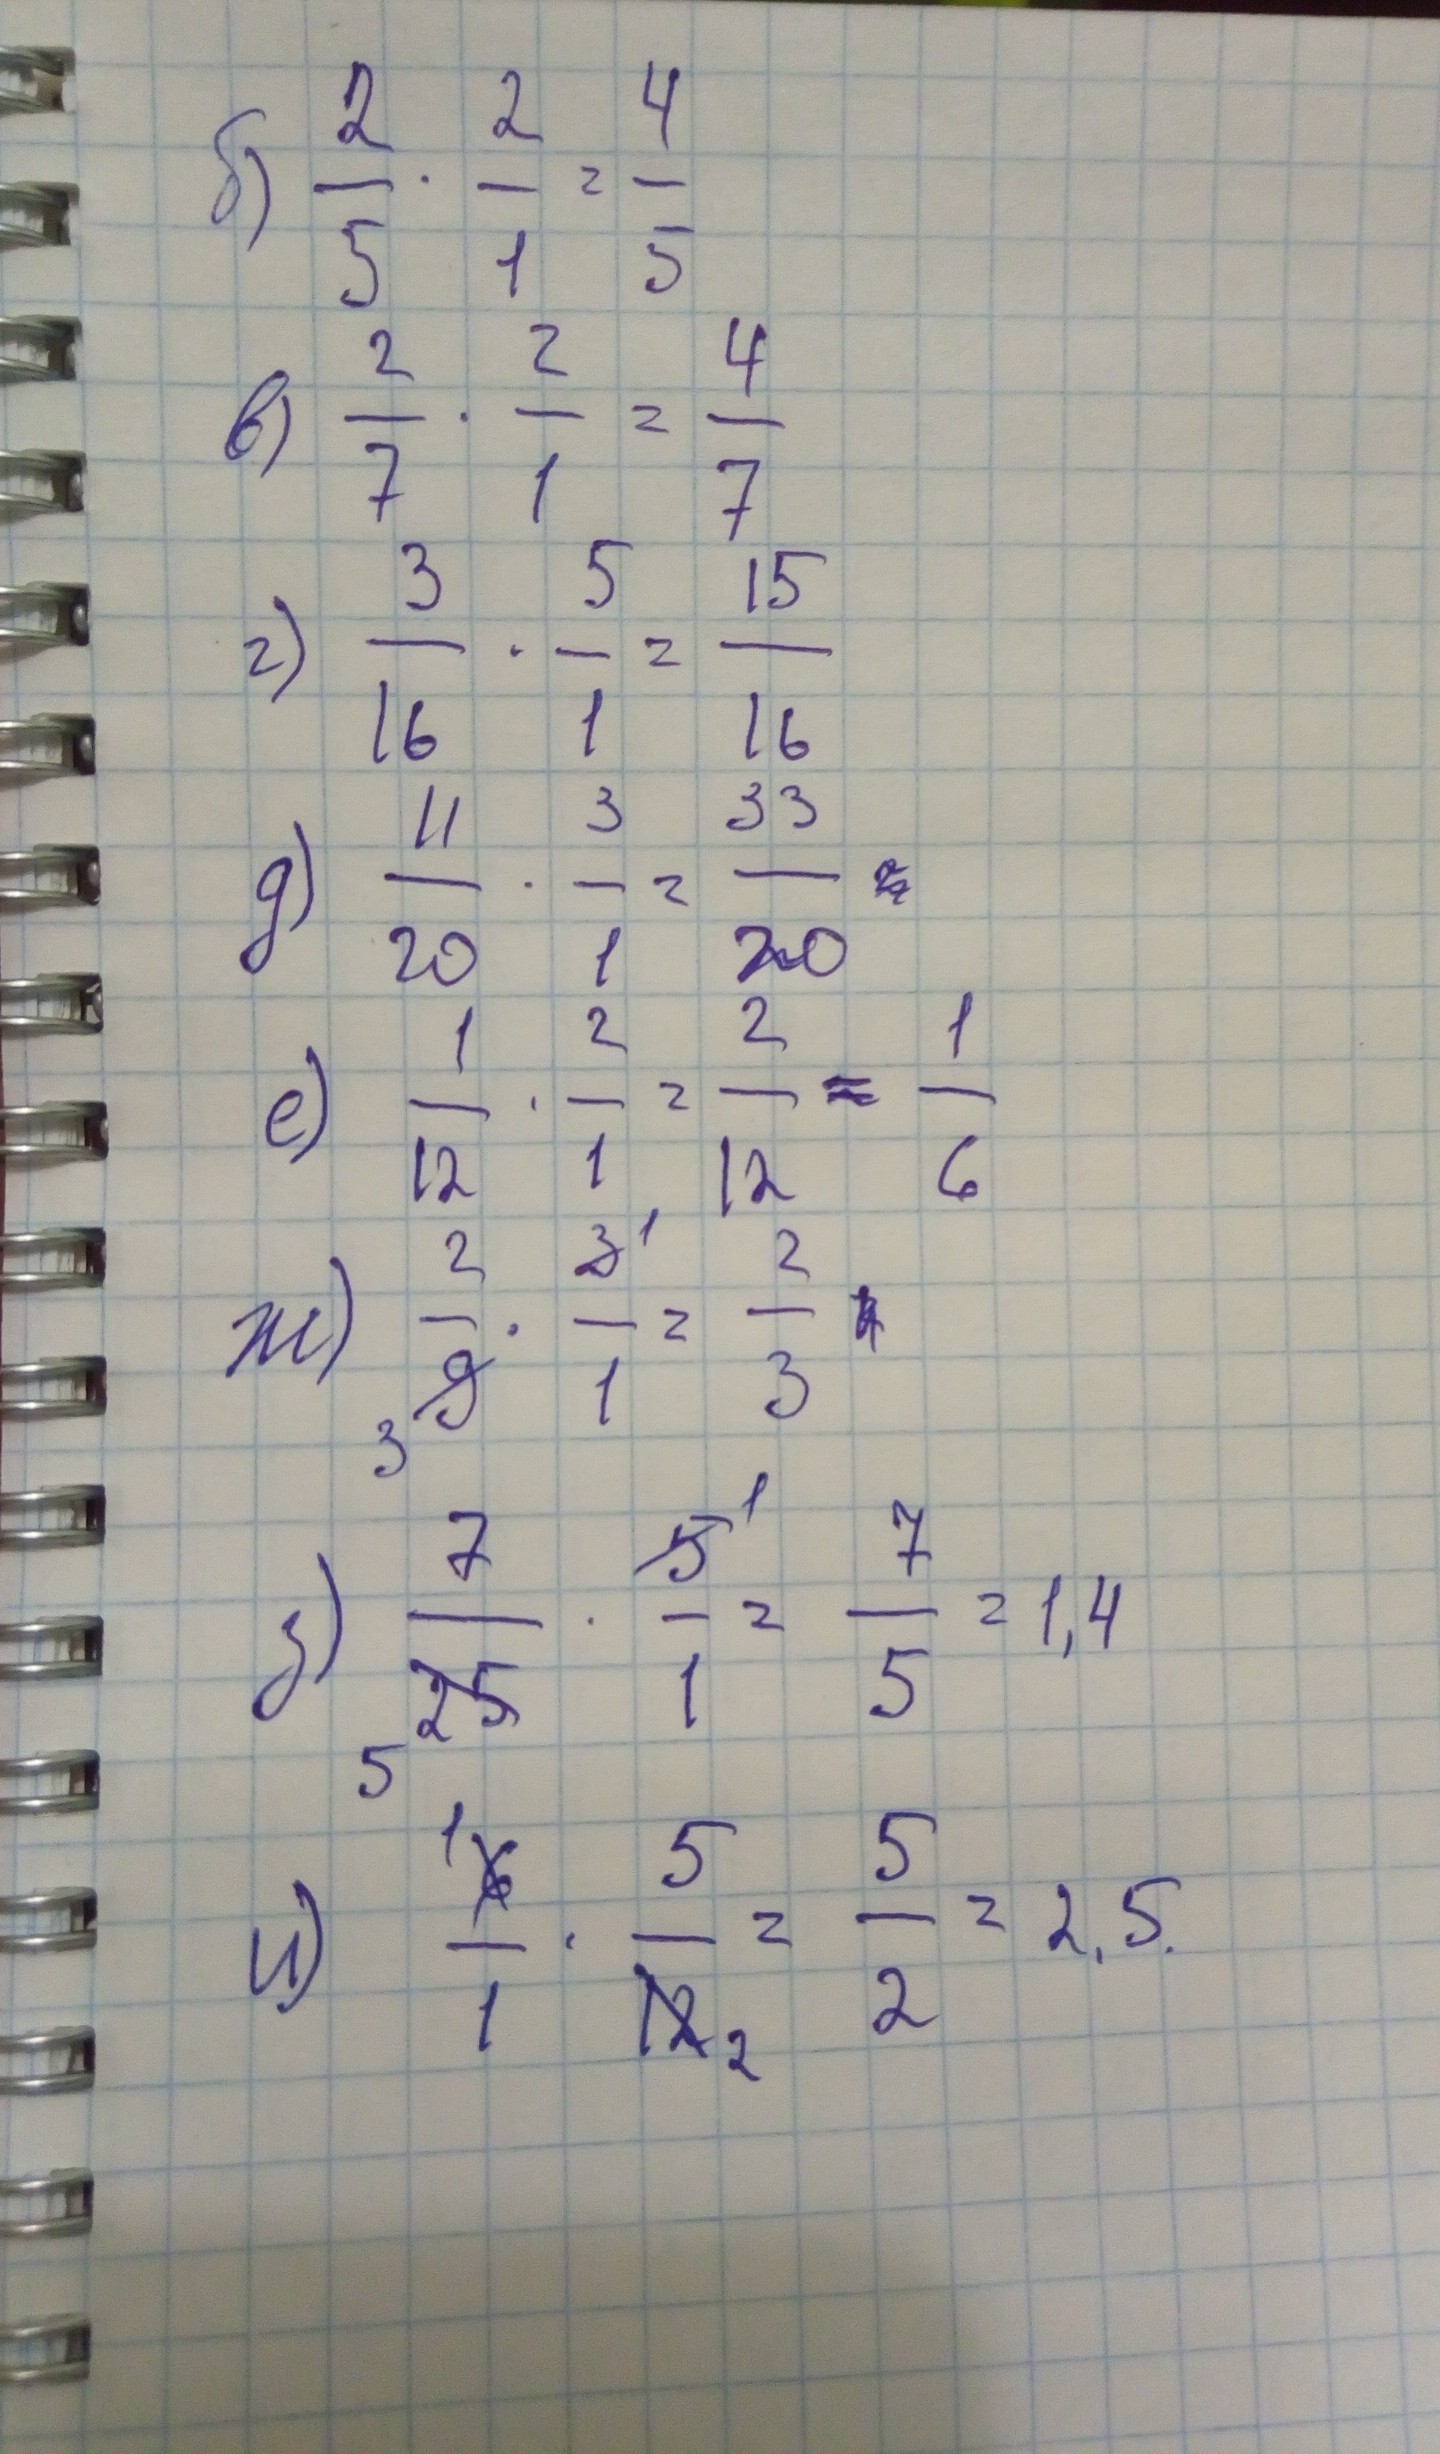 б) 2/5 · 2/1 = 4/5
в) 2/7 · 2/1 = 4/7
г) 3/16 · 5/1 = 15/16
д) 11/20 · 3/1 = 33/20
е) 1/12 · 2/1 = 2/12 = 1/6
ж) 2/9 3 · 3/1 1 = 2/3
з) 7/25 5 · 5/1 1 = 7/5 = 1,4
и) 1 6/1 · 5/12 2 = 5/2 = 2,5.